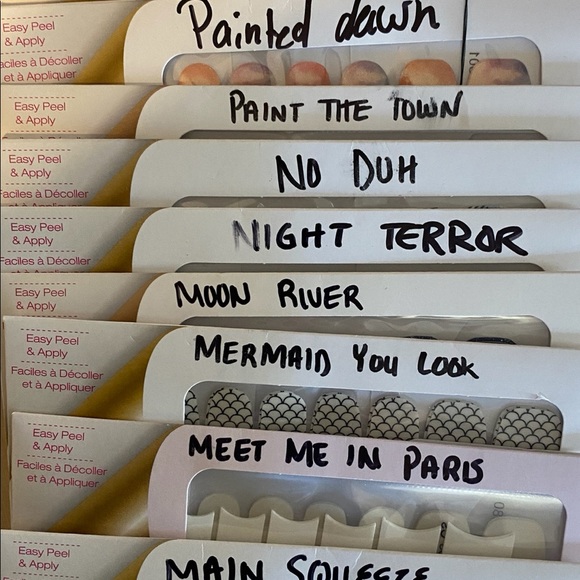 Painted dawn
Easy Peel
& Apply
aciles à Décoller
et à Appliquer
PAINT THE TOWN
Easy Peel
& Apply
NO DUH
Easy Peel
& Apply
Faciles à Décoller
NIGHT TERROR
Easy Peel
& Apply
Faciles à Décoller
MOON RIVER
Easy Peel
& Apply
MERMAID YOU LOOK
Easy Peel
& Apply
Faciles à Décoller
et à Appliquer
MEET ME IN PARIS
Easy Peel
& Apply
Faciles à Décoller
et à Appliquer
MAIN SQUEEZE
Easy Peel
& Apply